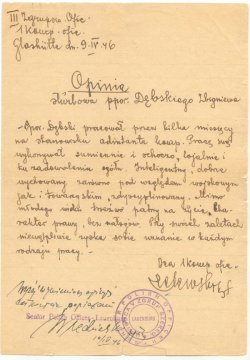 III Zgrupow. Ofic.
1 Komp. ofic.
Glashütte dn. 9.IV.46
Opinia
służbowa ppor. Dębskiego Zbigniewa
Ppor. Dębski pracował przez kilka miesięcy
na stanowisku adiutanta komp. Pracę swą
wykonywał sumiennie i ochoczo, lojalnie i
ku zadowoleniu ogółu. Inteligentny, dobrze
wychowany, zarówno pod względem wojskowym
jak i towarzyskim, zdyscyplinowany. Mimo
młodego wieku trzeźwo patrzy na życie, cha-
rakter prawy, bez nałogów. Przy swoich zaletach
niewątpliwie zyska sobie uznanie w każdym
rodzaju pracy.
Dca 1 Komp. ofic.
Senior Polish Officer